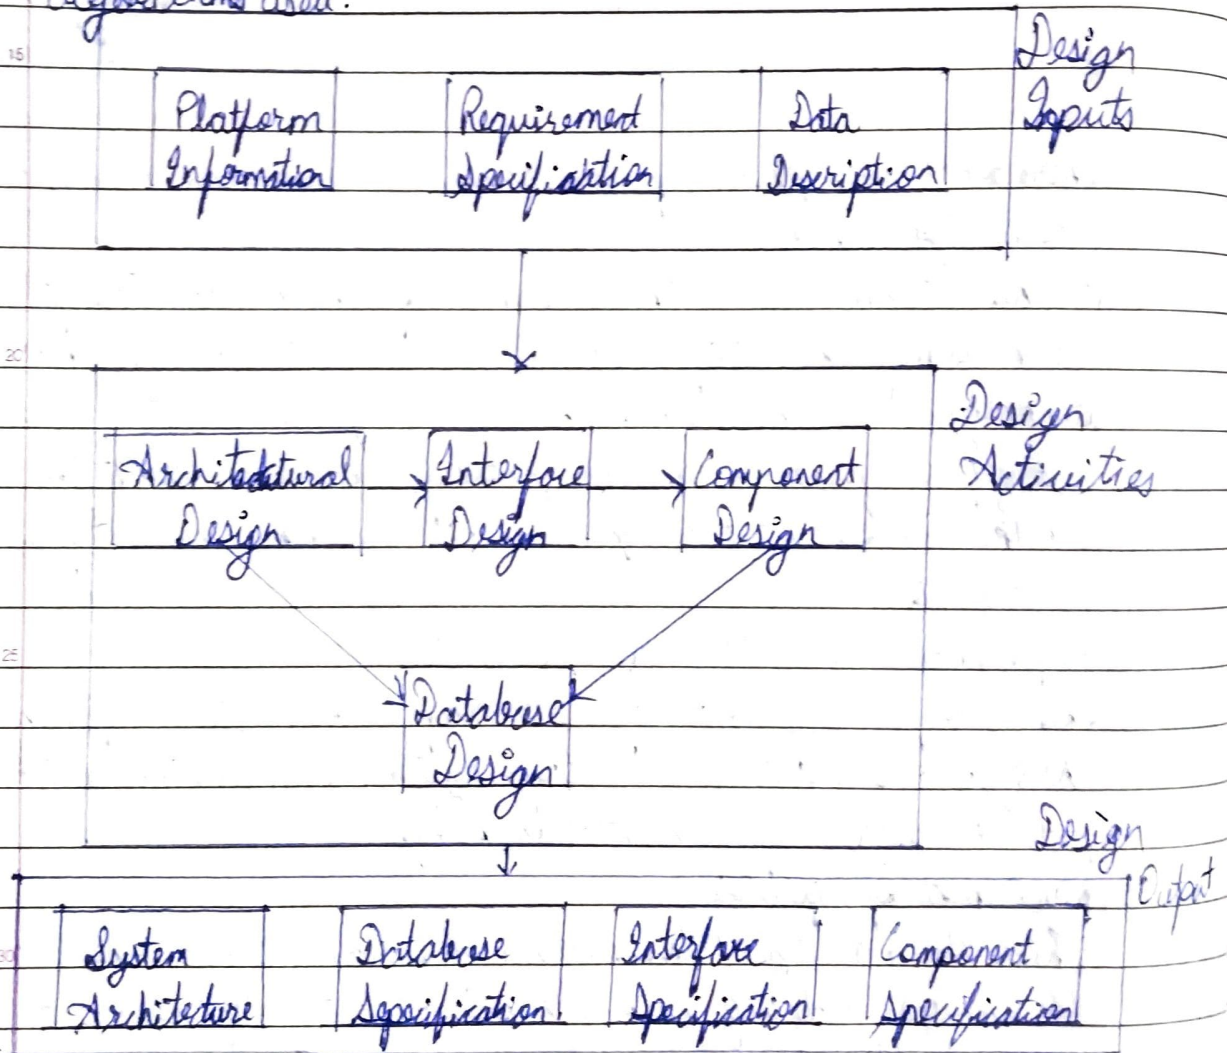 used.
15
Design
Inputs
Platform
Information
Requirement
Specification
Data
Description
20
Design
Activities
Architectural
Design
Interface
Design
Component
Design
25
Database
Design
Design
Output
30
System
Architecture
Database
Sepecification
Interface
Specification
Component
Specification